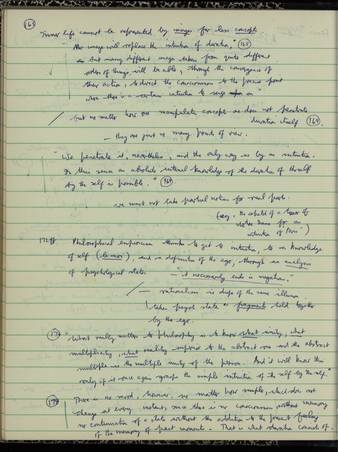 (163)
Inner life cannot be represented by images far less concepts
"No image will replace the intuition of duration," (165)
but many different images taken from quite different
orders of things will be able, through the convergence of
their action, to direct the consciousness to the precise point
where there is a certain intuition to seize on"
/ but no matter how one manipulates concepts one does not penetrate
duration itself (169)
— they are just so many points of view.
"We penetrate it, nevertheless, and the only way is by an intuition.
In this sense an absolute internal knowledge of the duration of the self
by the self is possible." (169)
we must not take partial notion for real parts.
172ff Philosophical empiricism thinks to get to intuition, to a knowledge
of self (le moi), and a definition of the ego, through an analysis
of psychological states.
— it necessarily ends in negation.
/— rationalism is dupe of the same illusion
takes psychol states as fragments held together
by the ego.
"What really matters to philosophy is to know what unity, what
multiplicity, what reality superior to the abstract one and the abstract
multiple is the multiple unity of the person. And it will know this
only if it once again grasps the simple intuition of the self by the self."
(179) There is no mood, however, no matter how simple, which does not
change at every instant, since there is no consciousness without memory
no continuation of a state without the addition, to the present feeling
of the memory of past moments. That is what duration consists of.